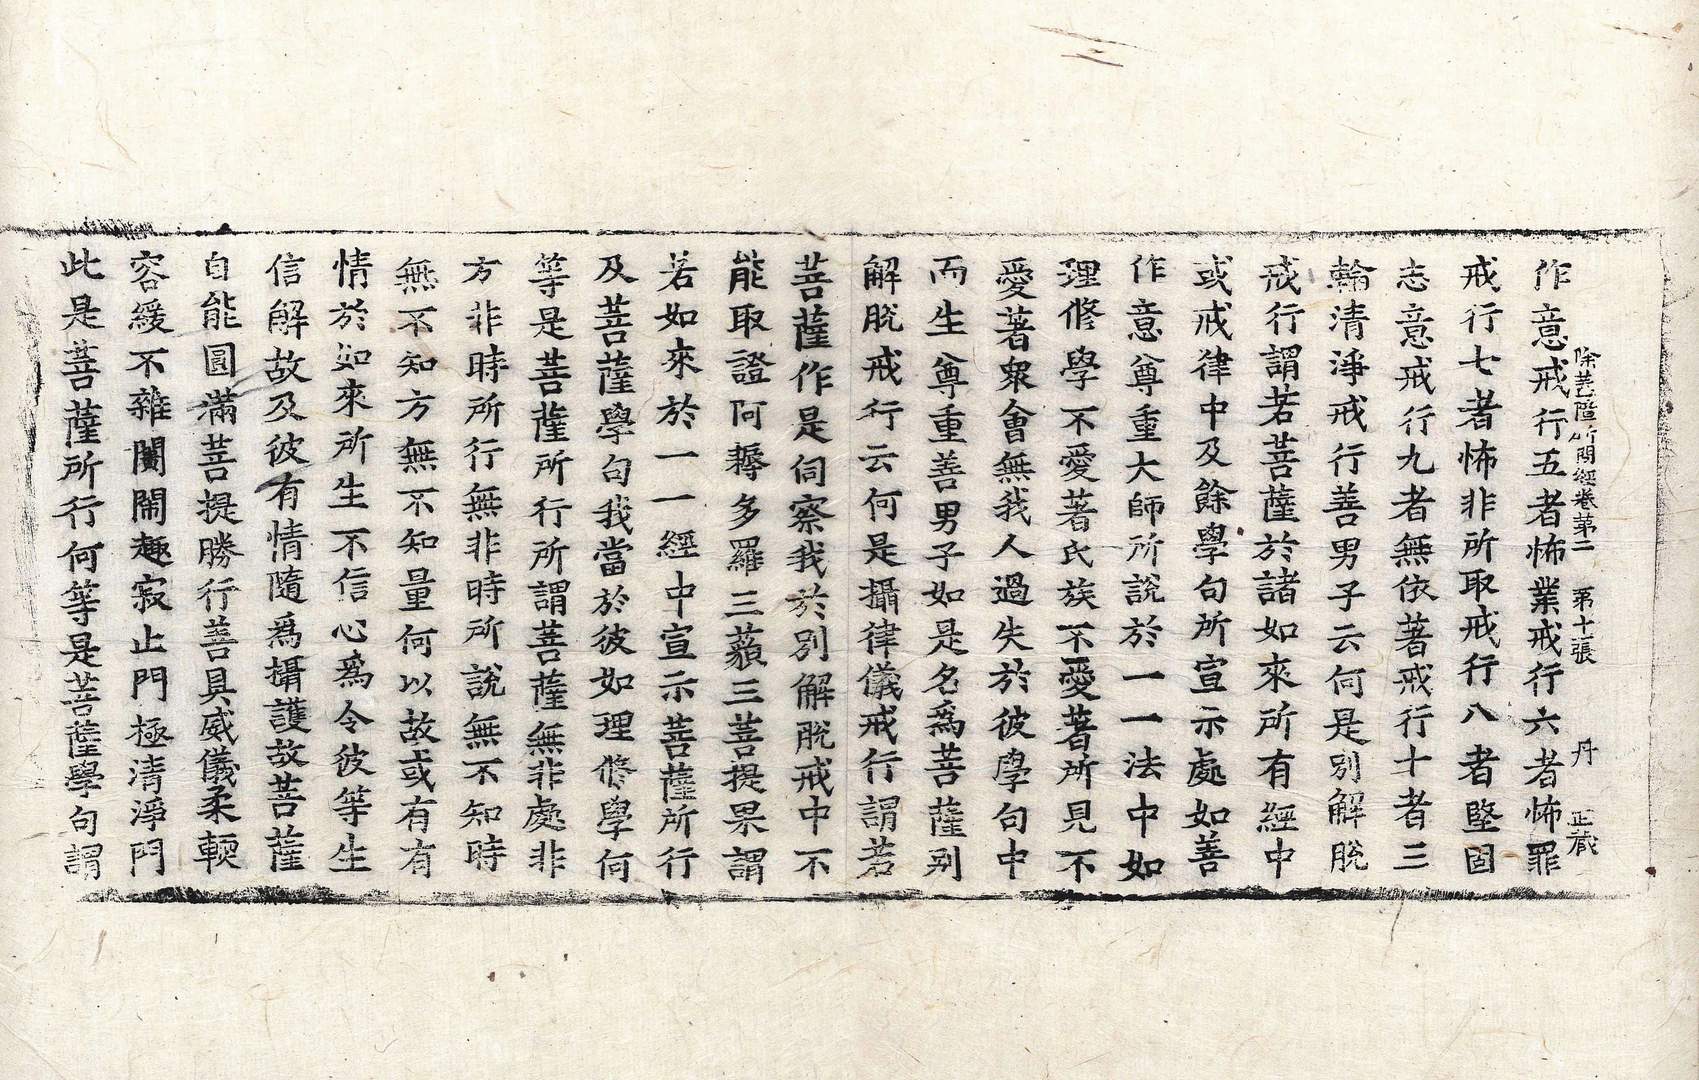 除菩薩所問經卷第二　第十張　丹　正藏
作意戒行五者怖業戒行六者怖罪
戒行七者怖非所取戒行八者堅固
志意戒行九者無依著戒行十者三
輪清淨戒行善男子云何是別解脫
戒行謂若菩薩於諸如來所有經中
或戒律中及餘學句所宣示處如善
作意尊重大師所說於一一法中如
理修學不愛著氏族不愛著所見不
愛著衆會無我人過失於彼學句中
而生尊重善男子如是名爲菩薩別
解脫戒行云何是攝律儀戒行謂若
菩薩作是伺察我於別解脫戒中不
能取證阿耨多羅三藐三菩提果謂
若如來於一一經中宣示菩薩所行
及菩薩學句我當於彼如理修學何
等是菩薩所行所謂菩薩無非處非
方非時所行無非時所說無不知時
無不知方無不知量何以故或有有
情於如來所生不信心爲令彼等生
信解故及彼有情隨爲攝護故菩薩
自能圓滿菩提勝行善具威儀柔輭
容緩不雜闠閙趣寂止門極清淨門
此是菩薩所行何等是菩薩學句謂